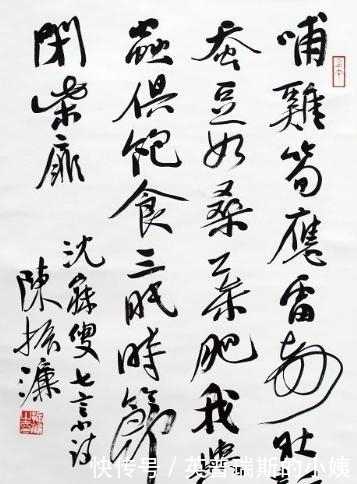 哺雞筍應雷
蚕豆如桑葉肥我
俱飽食三眠時節
閉柴扉
沈寐叟七言小詩
陳振濂
快传号/英普瑞斯的小姨